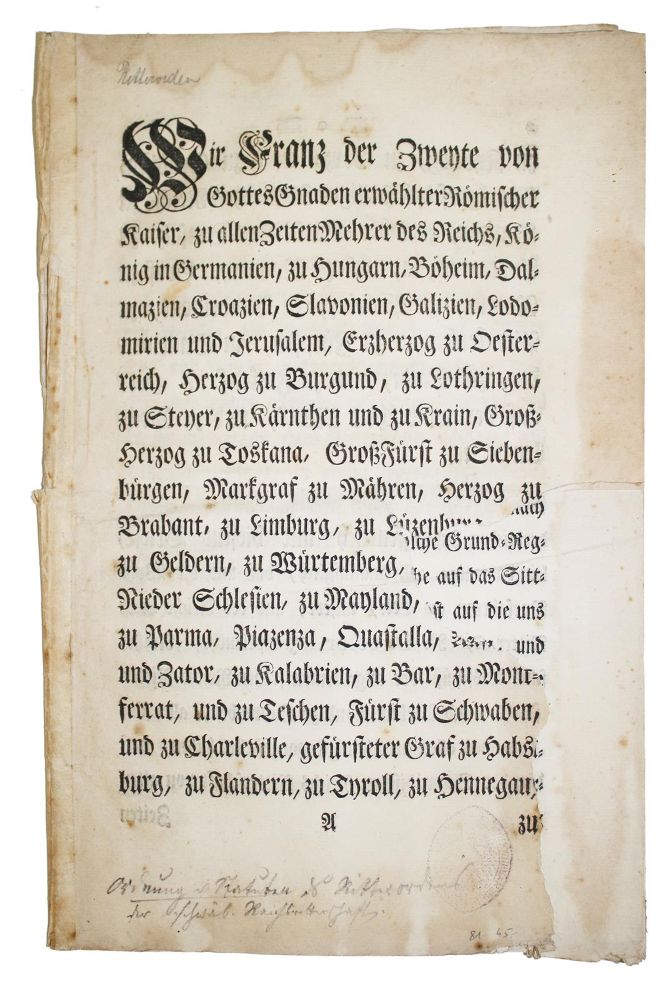 Ritterorden
Wir Franz der Zweyte von
Gottes Gnaden erwählter Römischer
Kaiser, zu allen Zeiten Mehrer des Reichs, Kö-
nig in Germanien, zu Hungarn, Böheim, Dal-
mazien, Croazien, Slavonien, Galizien, Lodo-
mirien und Jerusalem, Erzherzog zu Oester-
reich, Herzog zu Burgund, zu Lothringen,
zu Steyer, zu Kärnthen und zu Krain, Groß-
Herzog zu Toskana, GroßFürst zu Sieben-
bürgen, Markgraf zu Mähren, Herzog zu
Brabant, zu Limburg, zu Lüzenburg
Grund-Reg-
zu Geldern, zu Würtemberg,
auf das Sitt-
Nieder Schlesien, zu Mayland,
auf die uns
zu Parma, Piazenza, Quastalla,
und
und Zator, zu Kalabrien, zu Bar, zu Mont-
ferrat, und zu Teschen, Fürst zu Schwaben,
und zu Charleville, gefürsteter Graf zu Habs-
burg, zu Flandern, zu Tyroll, zu Hennegau,
A zu
Ordnung u. Statuten d. Ritterordens
der schwäb. Reichsritterschaft.
81 45